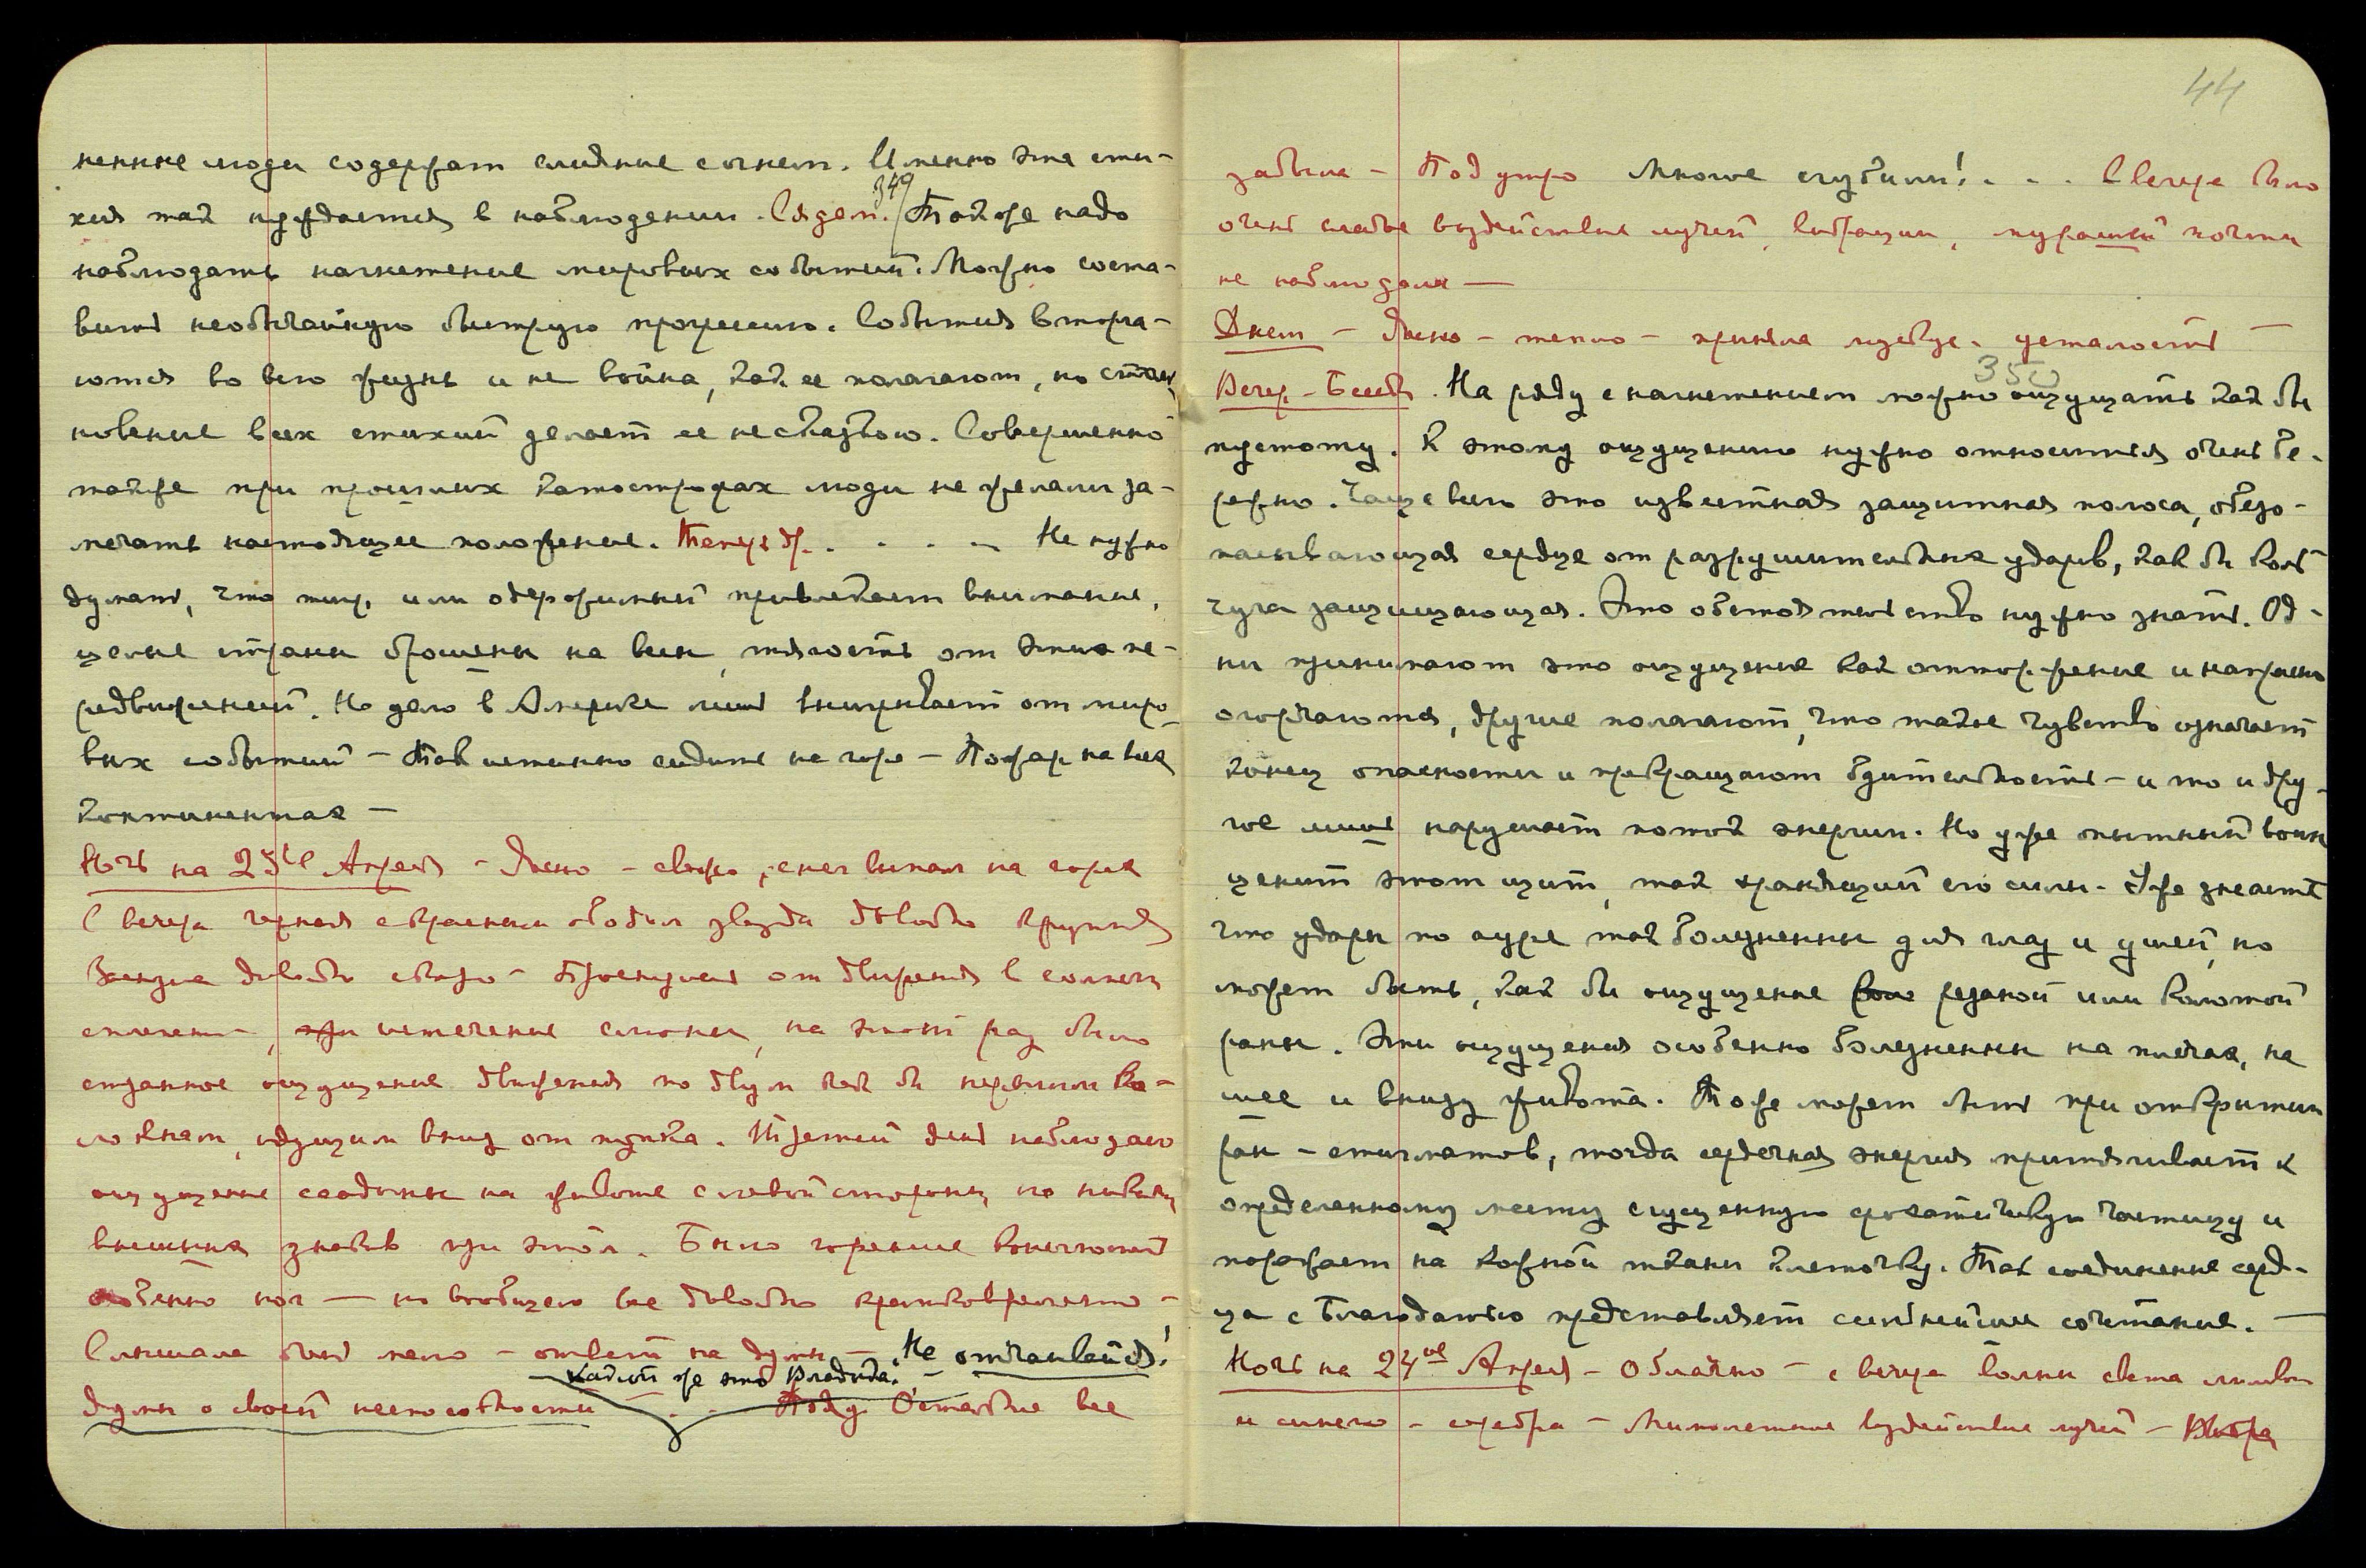 ненные люди содержат слияние с огнем. Именно эта сти-
хия так нуждается в наблюдении. Сядем. 349 Также надо
наблюдать нагнетение мировых событий. Можно соста-
вить необычайную быструю прогрессию. События вторга-
ются во всю жизнь и не война, как ее полагают, но столк-
новение всех стихий делает ее несказкою. Совершенно
также при прошлых катастрофах люди не желали за-
мечать настоящее положение. Теперь др. . . . . Не нужно
думать, что мир или одержимый привлекает внимание,
целые страны брошены на весы, тягость от этих пе-
редвижений. Но дело в Америке лишь выигрывает от миро-
вых событий – Так истинно сидите на горе – Пожар на всех
континентах –
Ночь на 23ье Апреля – Ясно – свежо, снег выпал на горах
С вечера черная с красным ободом звезда довольно крупная
Заснула довольно скоро – Проснулась от движения в солнечн
сплетении, истечение слюны, на этот раз было
странное ощущение движения по двум как бы нервным во-
локнам, идущим вниз от пупка. Третий день наблюдаю
ощущение ссадины на животе с левой стороны, но никаких
внешних знаков при этом. Было горение конечностей
особенно ног — но вообще все довольно кратковременно –
Слышала очень мало – ответ на думы – Не отчаивайся!
Кадий же это Владыка! –
думы о своей неспособности . . . Пойду. Остальное все
44
забыла – Под утро Многое сгубили! . . . С вечера было
очень слабое воздействие лучей, вибрации, мурашки почти
не наблюдала —
Днем – Ясно – тепло – приняла усталость —
Вечер – Беседа. На ряду с нагнетением можно 350 ощущать как бы
пустоту. К этому ощущению нужно относиться очень бе-
режно. Чаще всего это известная защитная полоса, обезо-
пасывающая сердце от разрушительных ударов, как бы коль-
чуга защищающая. Это обстоятельство нужно знать. Од-
ни принимают это ощущение как отторжение и напрасно
огорчаются, другие полагают, что такое чувство означает
конец опасности и прекращают бдительность – и то и дру-
гое лишь нарушает поток энергии. Но уже опытный воин
ценит этот щит, так хранящий его силы. Уже знаете
что удары по ауре так болезненны для глаз и ушей, но
может быть, как бы ощущение резаной или колотой
раны. Эти ощущения особенно болезненны на плечах, на
шее и внизу живота. Тоже может быть при открытии
ран – стигматов, тогда сердечная энергия притягивает к
определенному месту сгущенную фохатическую частицу и
поражает на кожной ткани клеточку. Так соединение серд-
ца с Благодатью представляет сильнейшее сочетание. —
Ночь на 24ое Апреля – Облачно – с вечера волны света лилов
и синего – серебра – Мимолетное воздействие лучей –